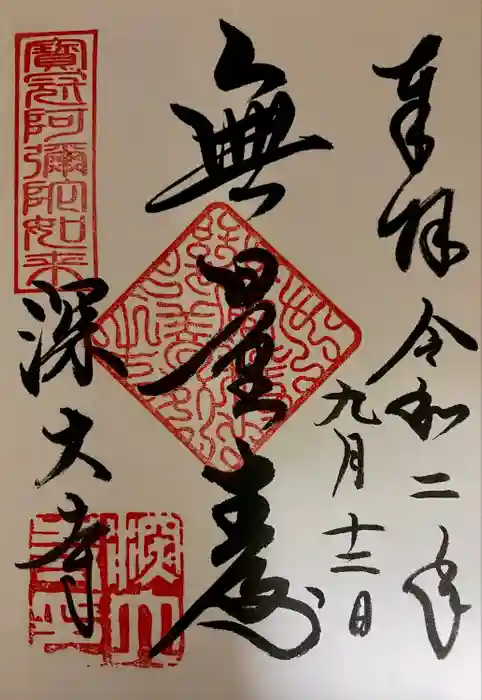 奉拝
令和二年
九月十三日
無量壽
寶冠阿彌陀如来
深大寺